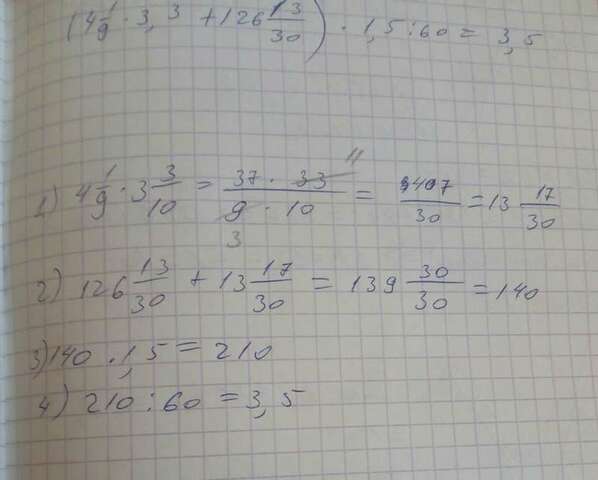 (4 1/9 · 3,3 + 126 13/30) · 1,5 : 60 = 3,5
1) 4 1/9 · 3 3/10 = 37 · 33 11 / 9 · 10 3 = 407/30 = 13 17/30
2) 126 13/30 + 13 17/30 = 139 30/30 = 140
3) 140 · 1,5 = 210
4) 210 : 60 = 3,5